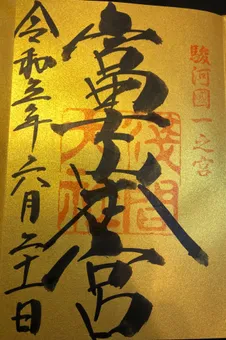 駿河國一之宮
富士本宮
淺間大社
令和三年六月二十一日